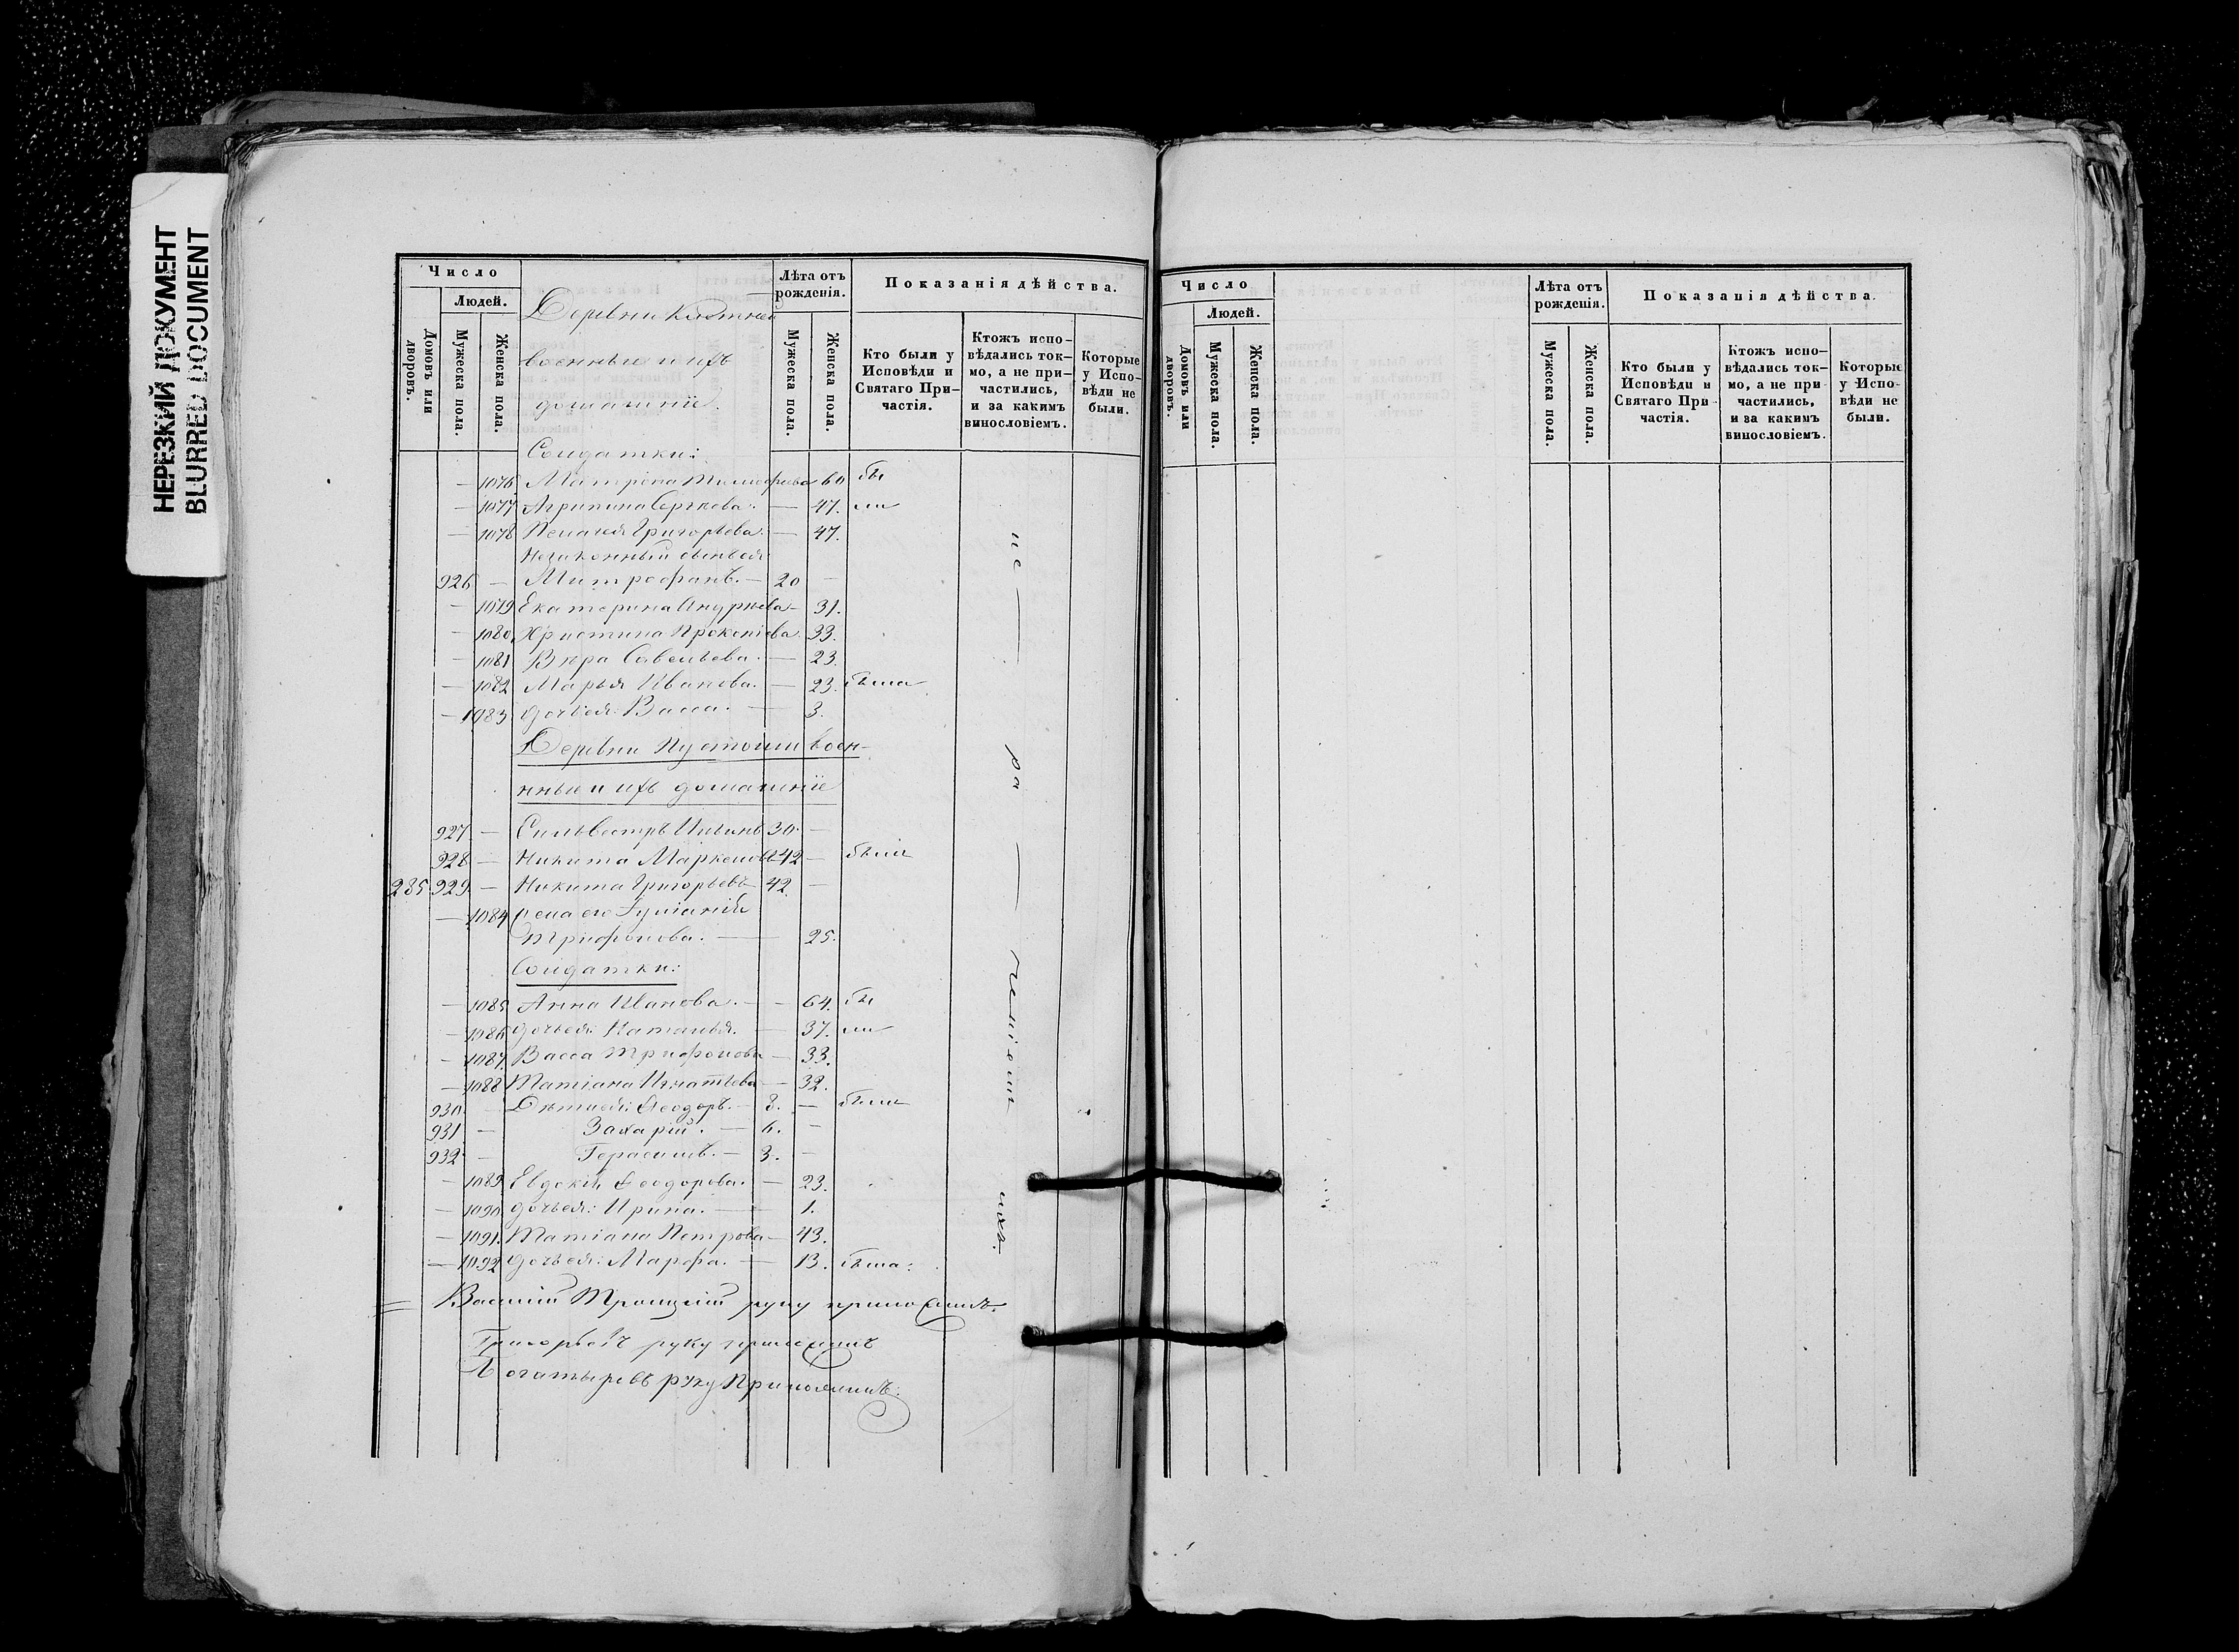 НЕРЕЗКИЙ ДОКУМЕНТ
BLURRED DOCUMENT
Число
Людей.
Домовъ или дворовъ.
Мужеска пола.
Женска пола.
Лѣта отъ рожденія.
Мужеска пола.
Женска пола.
Показанія дѣйства.
Кто были у Исповѣди и Святаго При-частія.
Ктожъ испо-вѣдались ток-мо, а не при-частились, и за какимъ винословіемъ.
Которые у Испо-вѣди не были.
Деревни
военные и ихъ
домашніе.
Солдатки:
— 1076 Матрона Тимофеева 60 бы
— 1077 Агрипина Сергѣева. — 47. ли
— 1078 Пелагея Григорьева. — 47.
Незаконный сынъ ея
926 — Митрофанъ. — 20 —
— 1079 Екатерина — 31.
— 1080 Христина Прокопіева. 33.
— 1081 Вѣра Савельева. — 23.
— 1082 Марья Иванова. — 23. была
— 1083 дочь ея: Васса. — 3.
Деревни Пустоши воен-
нные и ихъ домашніе
927 — Сильвестръ Ильинъ 30. —
928 — Никита 42 — были
285 929 — Никита Григорьевъ 42. —
— 1084 Жена его
Трифонова. — 25.
Солдатки:
— 1085 Анна Иванова. — 64. бы
— 1086 дочь ея: Наталья. — 37. ли
— 1087 Васса Трифонова — 33.
— 1088 Татіана Игнатьева — 32.
930 — Дѣти ея: Ѳеодоръ. — 8. — были
931 — Захарій. — 6. —
932 — Герасимъ. — 3. —
— 1089 Евдокія Ѳеодорова. — 23.
— 1090 дочь ея: Ирина. — 1.
— 1091 Татіана Петрова — 43.
— 1092 дочь ея: Марфа. — 13. была.
не — ра — ченіемъ
Василій Троицкій руку приложилъ.
Григорьевъ руку приложилъ
Богатыревъ руку Приложилъ.
Число
Людей.
Домовъ или дворовъ.
Мужеска пола.
Женска пола.
Лѣта отъ рожденія.
Мужеска пола.
Женска пола.
Показанія дѣйства.
Кто были у Исповѣди и Святаго При-частія.
Ктожъ испо-вѣдались ток-мо, а не при-частились, и за какимъ винословіемъ.
Которые у Испо-вѣди не были.